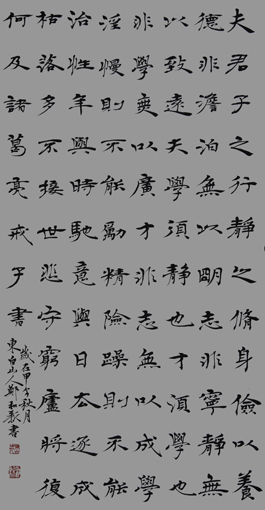 夫君子之行靜以脩身儉以養
德非澹泊無以明志非寧靜無
以致遠夫學須靜也才須學也
非學無以廣才非志無以成學
淫慢則不能勵精險躁則不能
治性年與時馳意與日去遂成
枯落多不接世悲守窮廬將復
何及諸葛亮戒子書
歲在甲午秋月
東白山人鄭和敬書